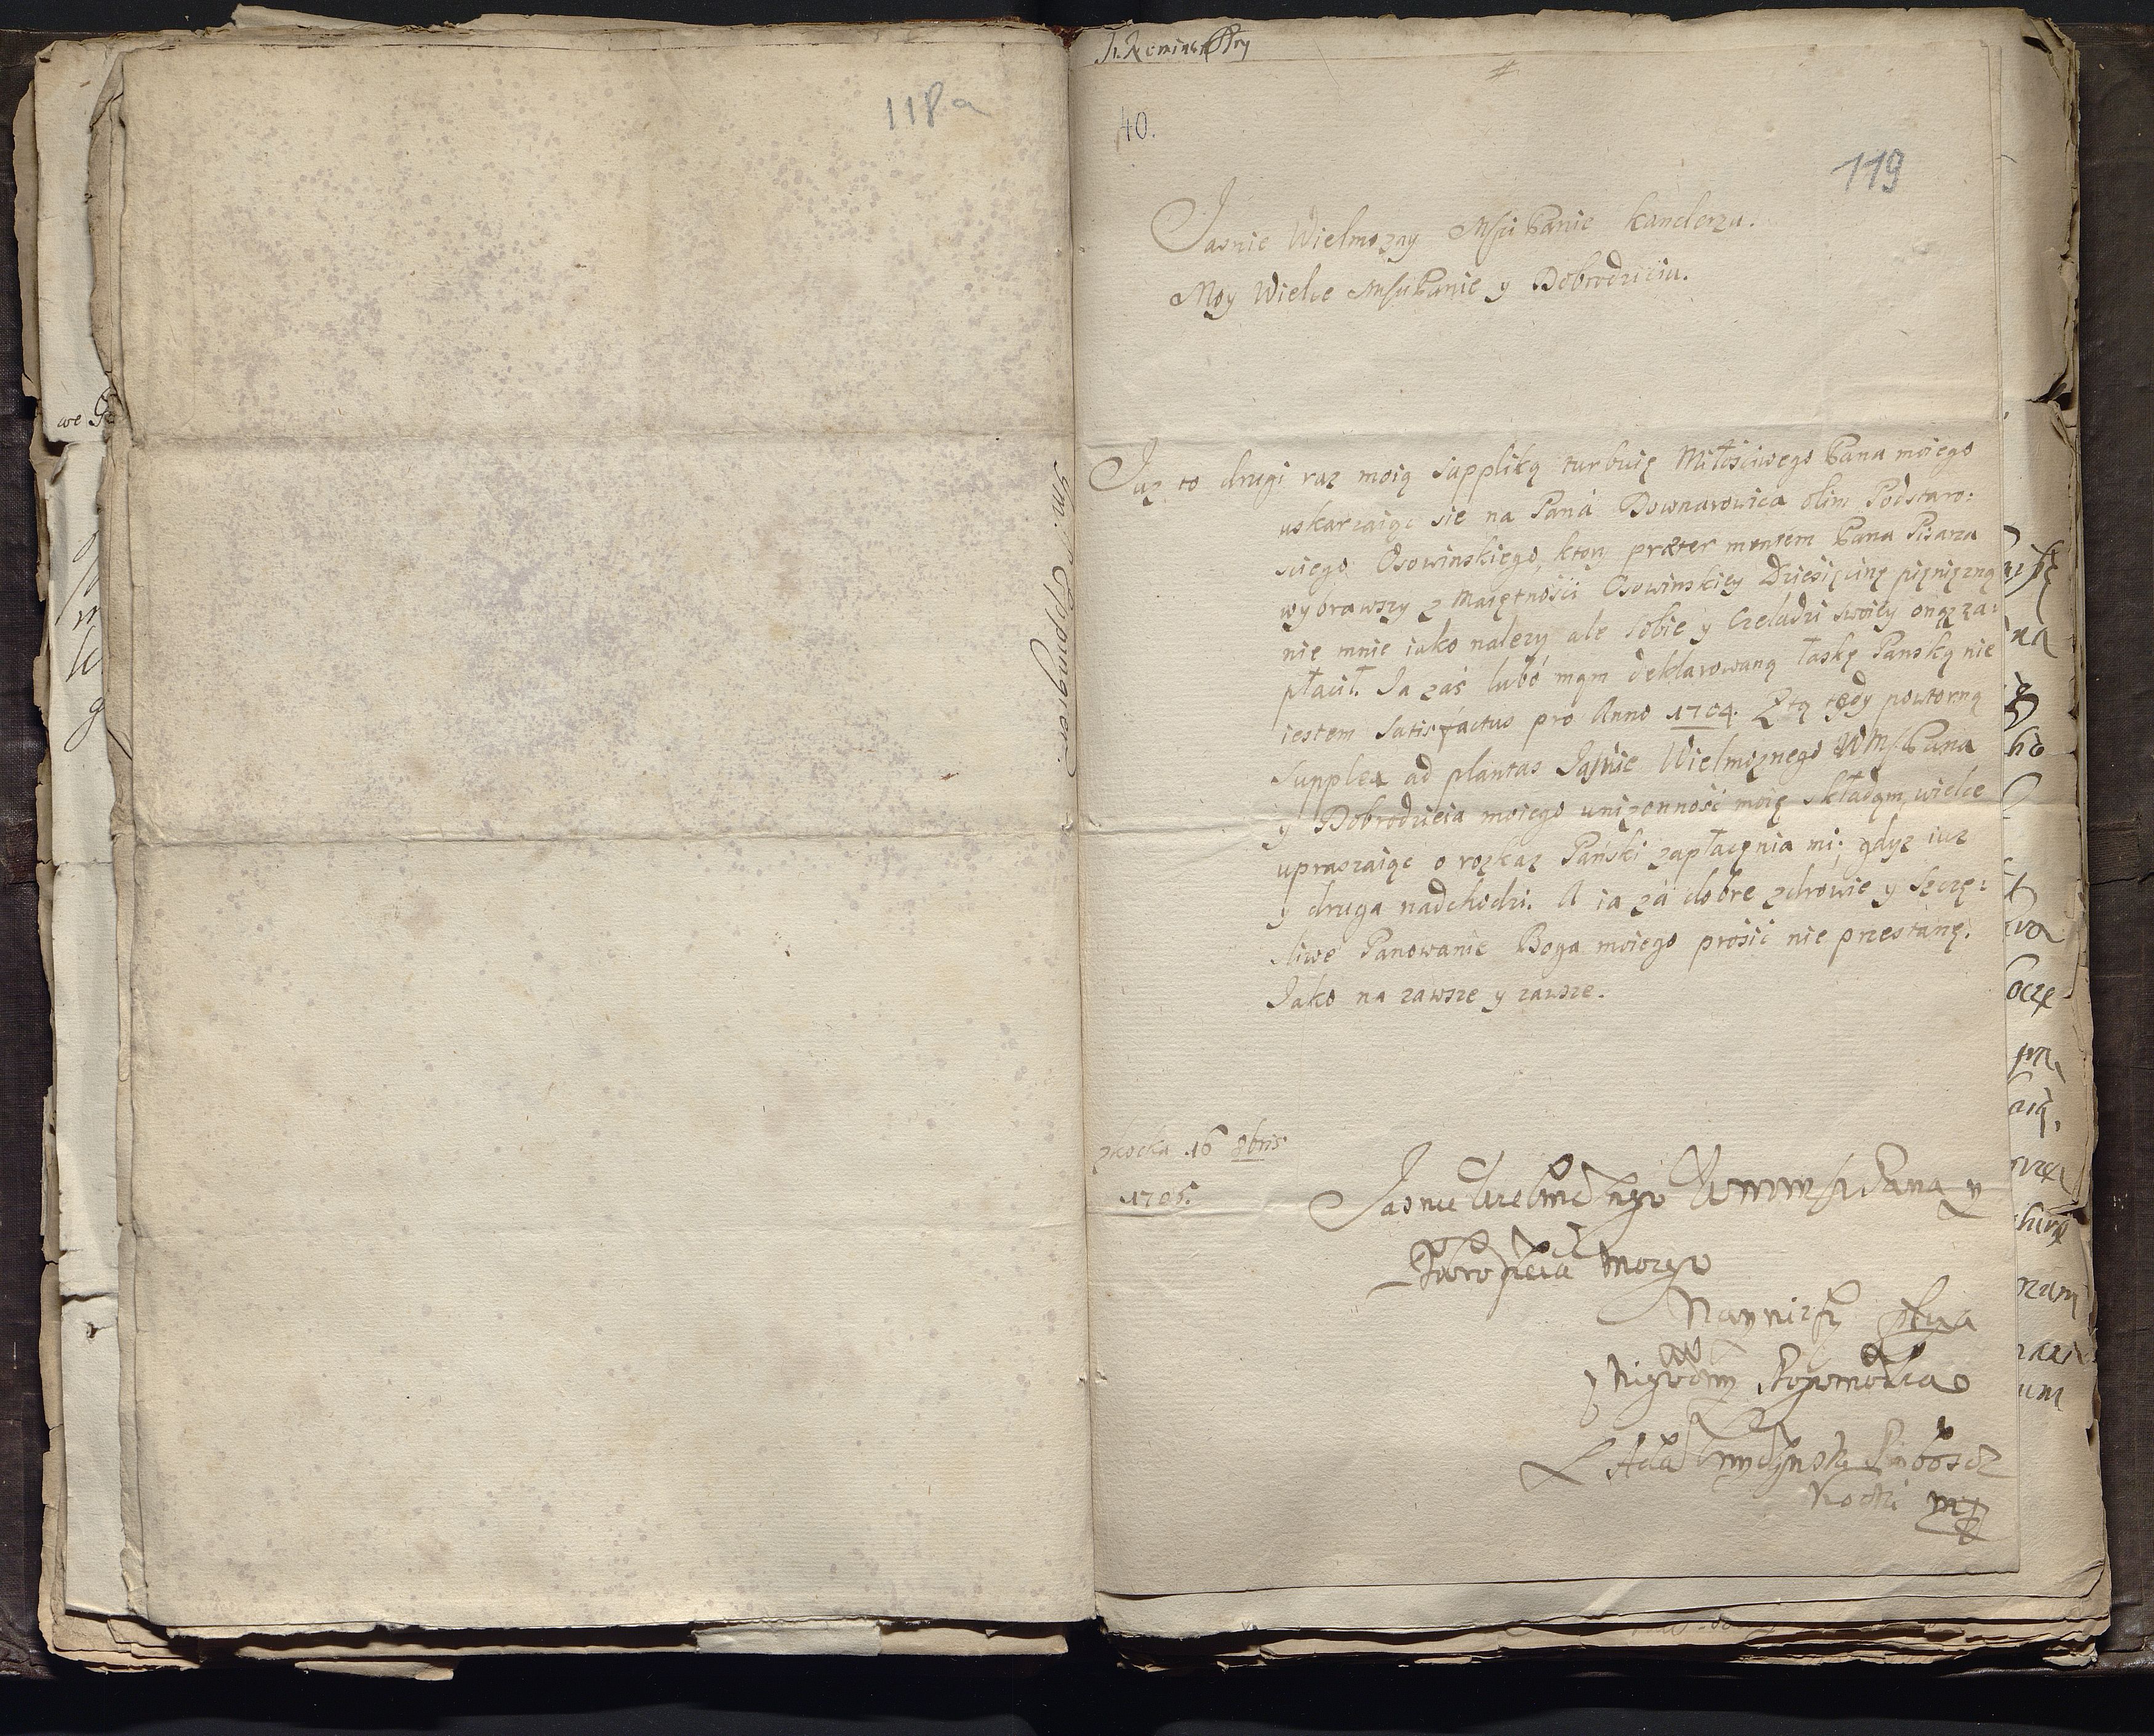 118a
40.
119
Jasnie Wielmozny MSci Panie kanclerzu.
Moy Wielce MSci Panie y Dobrodzieiu.
Juz to drugi raz moią suppliką turbuię Miłosciwego Pana moiego
uskarzaiąc sie na Paná Downarowica olim Podstaro:
sciego Osowinskiego, ktory præter mentem Pana Pisarza
wybrawszy z Maiętnosci Osowinskiey Dziesięcinę pięnięzną
nie mnie iako nalezy ale sobie y Czeladzi swoiey onąz za:
płacił. Ja zaś lubo mąm deklarowaną łaskę Panską nie
iestem satisfactus pro Anno 1704. Ztą tędy powtorną
supplex ad plantas Jaśnie Wielmoznego WMSc Pana
y Dobrodzieia moiego unizonność moię składąm, wielce
upraszaiąc o rozkaz Pański zapłacęnia mi; gdyz iuz
y druga nadchodzi. A ia zá dobre zdrowie y szczę:
sliwe Panowanie Boga moiego prosić nie przestanę.
Jako na zawsze y zawsze.
zkocka 16 8bris
1705.
Jasnie Wielmoznego WMMSci Pana y
Dobrodzieia moiego
Naynizszy sługa
y Bogomodlca
Proboscz
Kocki mp